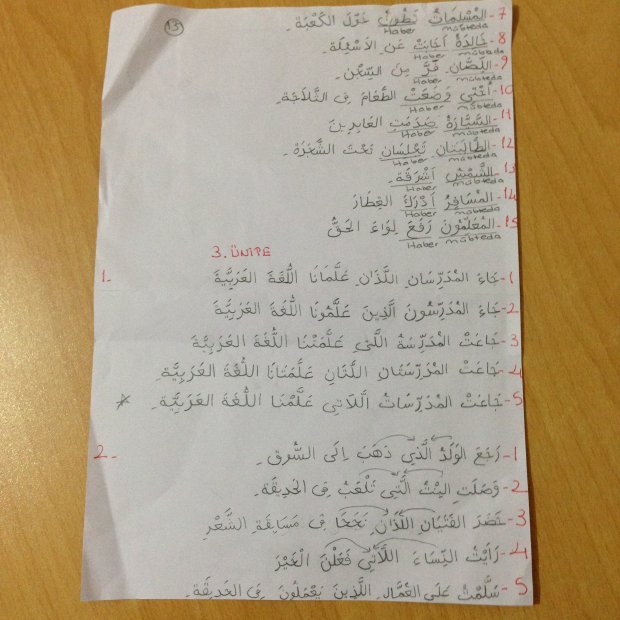 13
7- المُسْلِمَاتُ تَطُوفُ حَوْلَ الكَعْبَةِ.
Haber mübteda
8- خَالِدَةُ أَجَابَتْ عَنِ الاَسْئِلَةِ
Haber mübteda
9- اَللِّصَّانِ فَرَّ مِنَ السِّجْنِ.
Haber mübteda
10- أُخْتِي وَضَعَتْ الطَّعَامَ فِى الثَّلاَجَةِ.
Haber mübteda
11- السَّيَّارَةُ صَدَمَتِ العَابِرِينَ
Haber mübteda
12- الطَّالِبَتَانِ تَجْلِسَانِ تَحْتَ الشَّجَرَةِ.
Haber mübteda
13- الشَّمْسُ اَشْرَقَة.
Haber mübteda
14- المُسَافِرُ أَدْرَكَ القِطَارَ
Haber mübteda
15- المُعَلِّمُونَ رَفَعَ لِوَاءَ الحَقُّ
Haber mübteda
3. ÜNİTE
1. 1- جَاءَ المُدَرِّسَانِ اللَّذَانِ عَلَّمَانَا اللُّغَةَ العَرَبِيَّةَ
2- جَاءَ المُدَرِّسُونَ الَّذِينَ عَلَّمُونَا اللُّغَةَ العَرَبِيَّةَ
3- جَاءَتْ المُدَرِّسَةُ اللَّتِى عَلَّمَتْنَا اللُّغَةَ العَرَبِيَّةَ
4- جَاءَتْ المُدَرِّسَتَانِ اللَّتَانِ عَلَّمَتَانَا اللُّغَةَ العَرَبِيَّةِ.
5- جَاءَتْ المُدَرِّسَاتُ اَللاَتِى عَلَّمْنَا اللُّغَةَ العَرَبِيَّةِ.
2- 1- رَجَعَ الوَلَدُ الَّذِي ذَهَبَ اِلَى السُّوقِ.
2- وَصَلَتِ البِنْتُ الَّتِى تَلْعَبُ فِى الحَدِيقَةِ.
3- حَضَرَ الفَتَيَانِ اللَّذَانِ نَجَحَا فِى مَسَابَقَةِ الشَّعْرِ
4- رَأَيْتُ النِّسَاءَ اللَّاتِي فَعَلْنَ الْخَيْرَ
5- سَلَّمْتُ عَلَى العُمَّالِ اللَّذِينَ يَعْمَلُونَ فِى الحَدِيقَةِ.